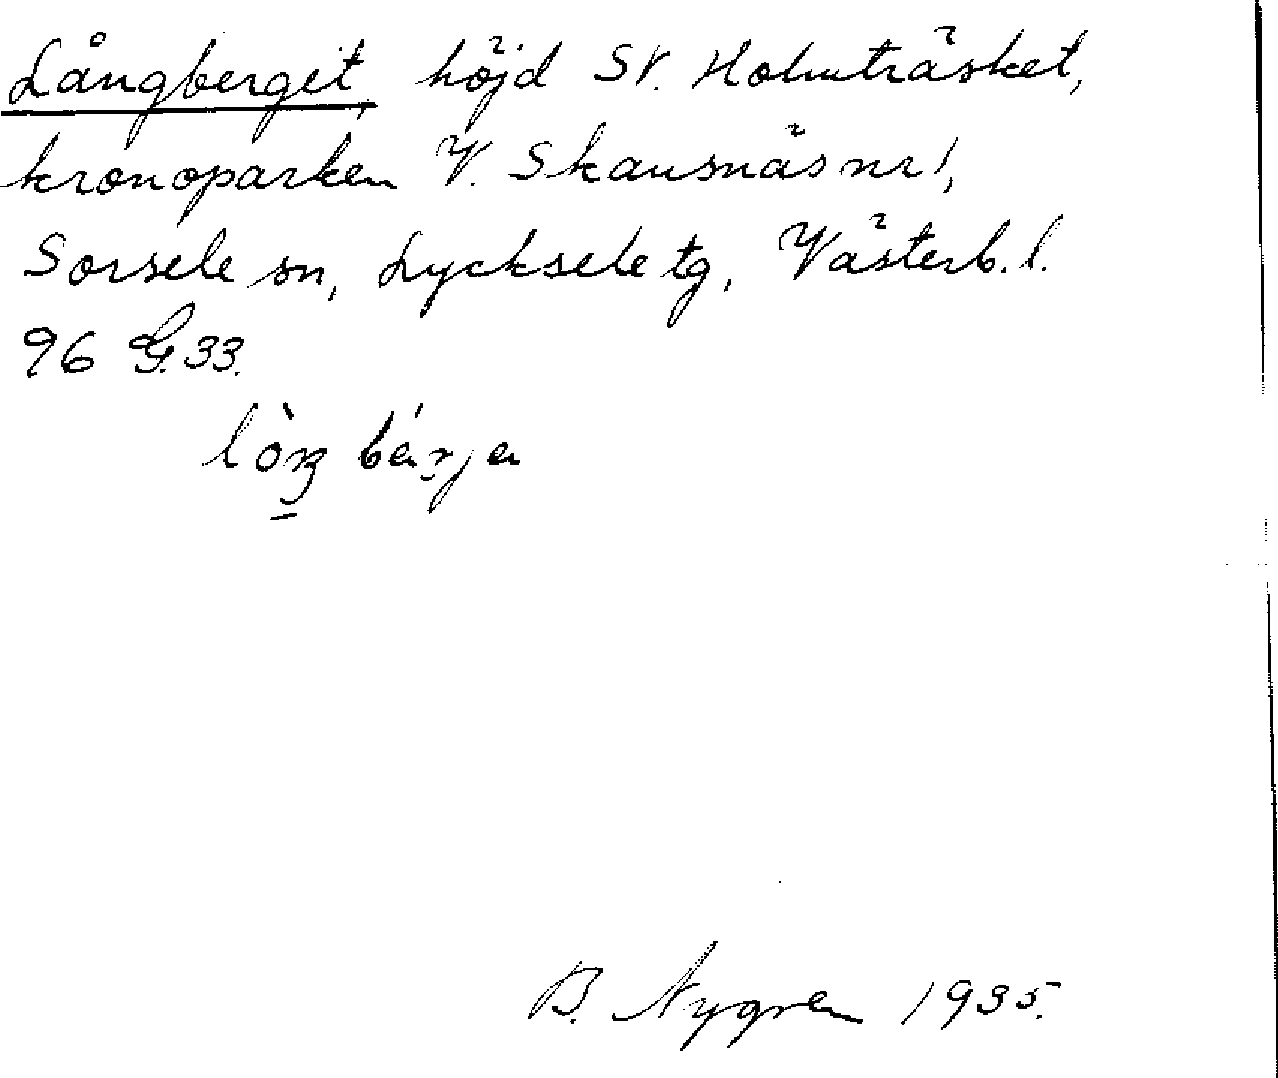 Långberget, höjd SV. Holmträsket,
kronoparken V. Skansnäs nr 1,
Sorsele sn, Lycksele tg, Västerb. l.
96 G. 33.
B. Nygren 1935.